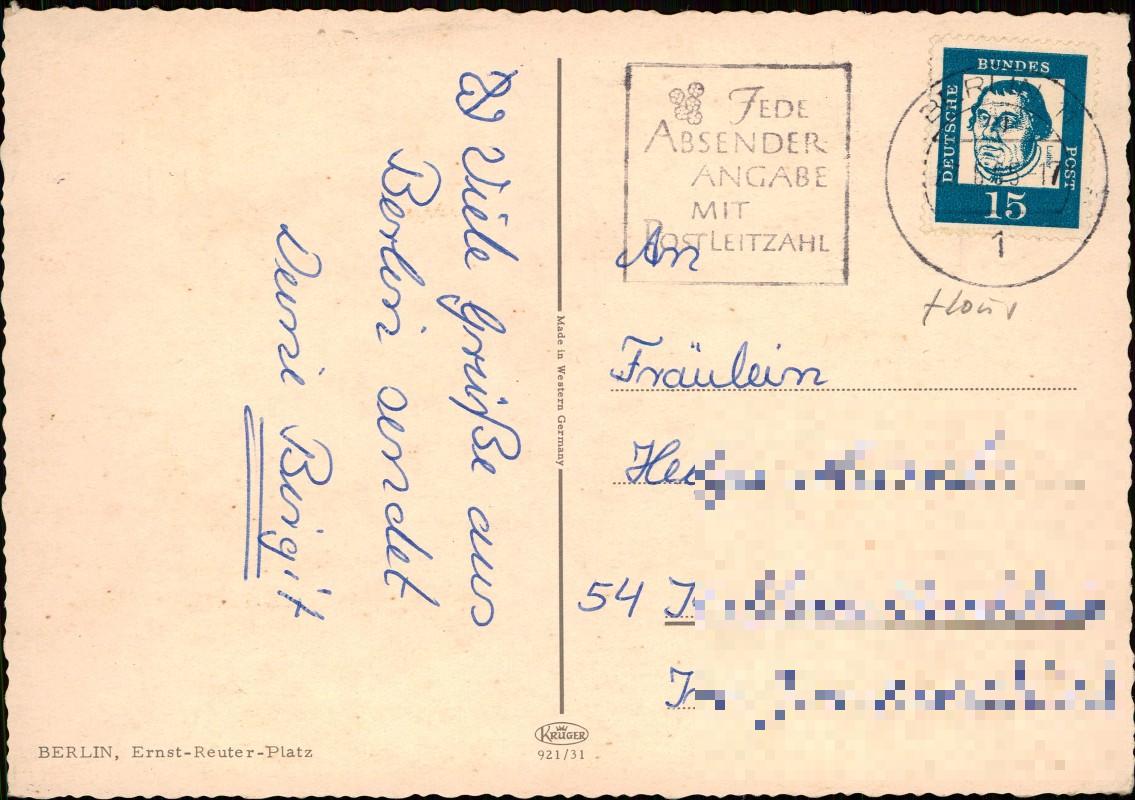 Viele Grüße aus
Berlin sendet
Deine Birgit
BERLIN, Ernst-Reuter-Platz
Made in Western Germany
KRÜGER
921/31
JEDE
ABSENDER
ANGABE
MIT
POSTLEITZAHL
DEUTSCHE BUNDES POST
15
BERLIN
17
1
An
Fräulein
54